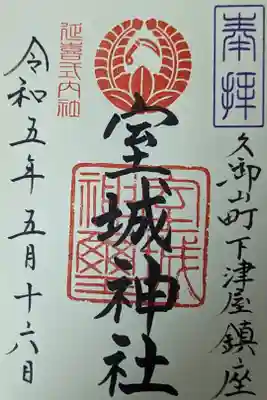 奉拝
久御山町下津屋鎮座
室城神社
延喜式内社
令和五年五月十六日